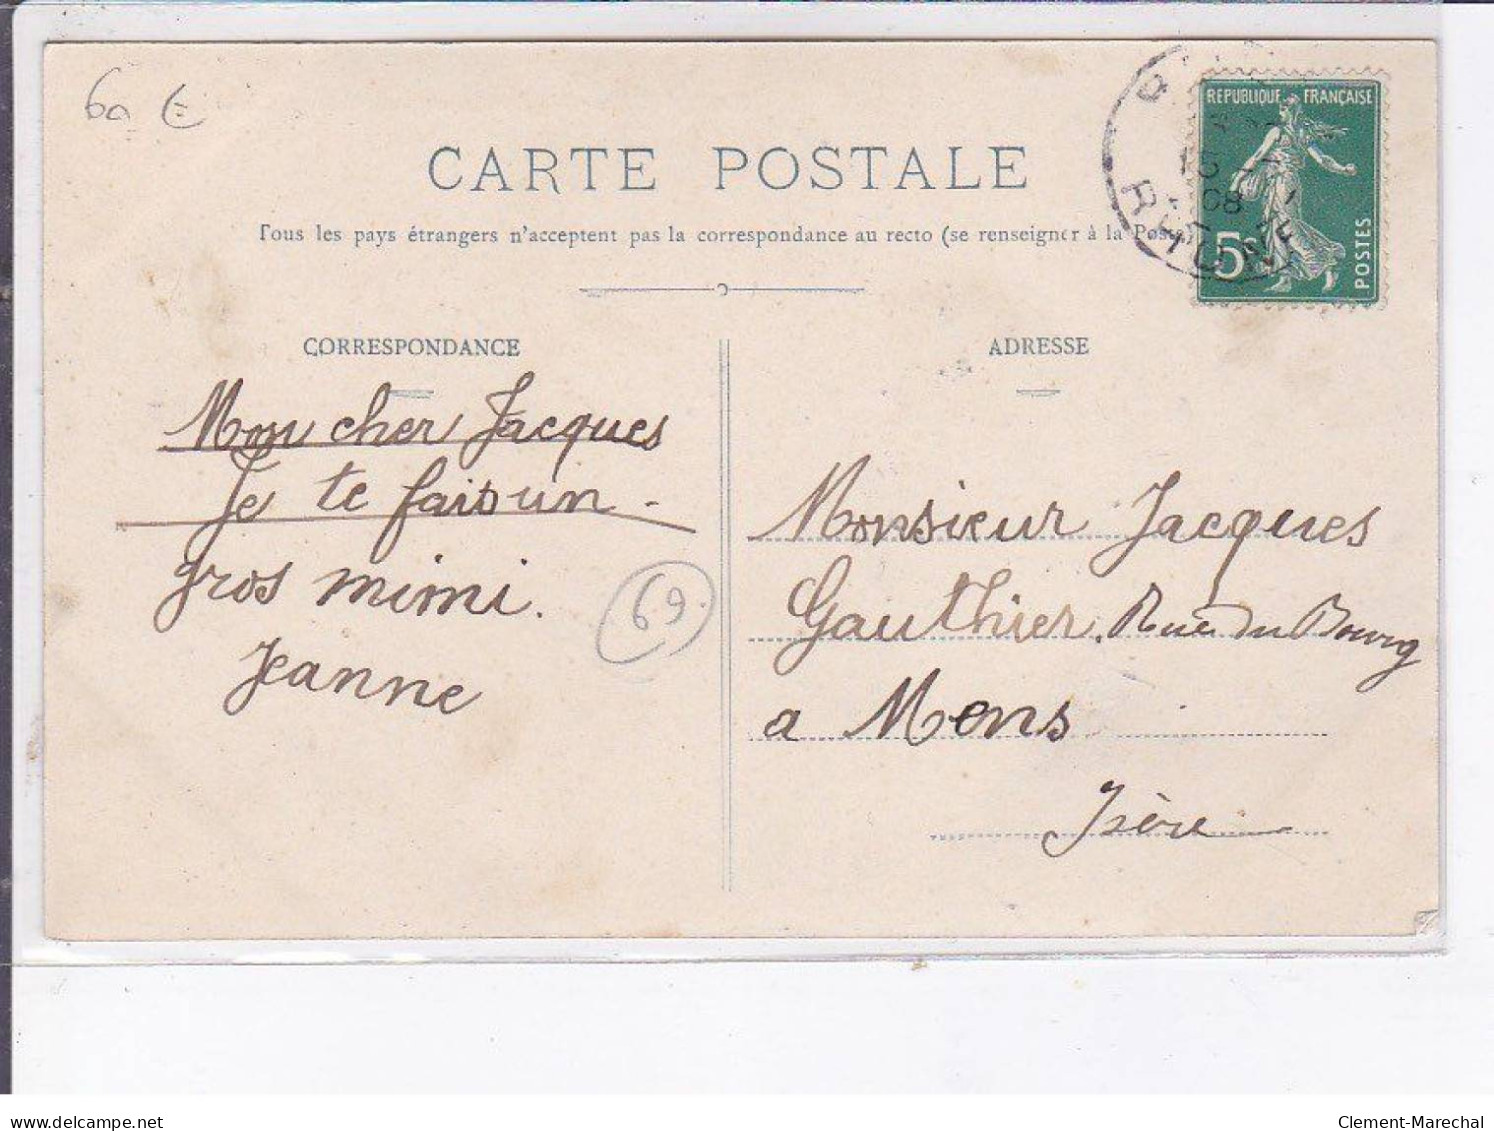 60 €
CARTE POSTALE
REPUBLIQUE FRANÇAISE
5c
POSTES
08
RHONE
Tous les pays étrangers n'acceptent pas la correspondance au recto (se renseigner à la Poste
CORRESPONDANCE
Mon cher Jacques
Je te fais un
gros mimi.
Jeanne
69.
ADRESSE
Monsieur Jacques
Gauthier. Rue du Bourg
a Mens
Isère
www.delcampe.net
Clement-Marechal